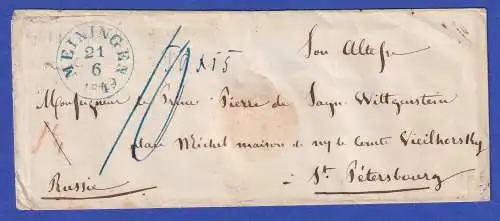 MEININGEN
21
6
Son Altesse
Monseigneur le Prince Pierre de Sayn Wittgenstein
place Michel maison de mr le Comte Vieilhorsky
St. Pétersbourg
Russie